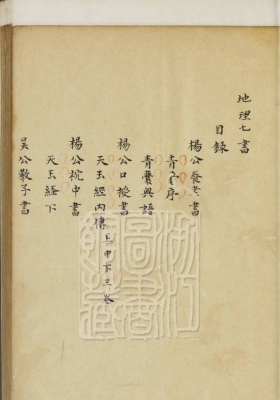 地理七書
目録
楊公養老書
青囊序
青囊奥語
楊公口授書
天玉經内傳 上中下三卷
楊公枕中書
天玉經下
吴公教子書
浙江圖書館藏